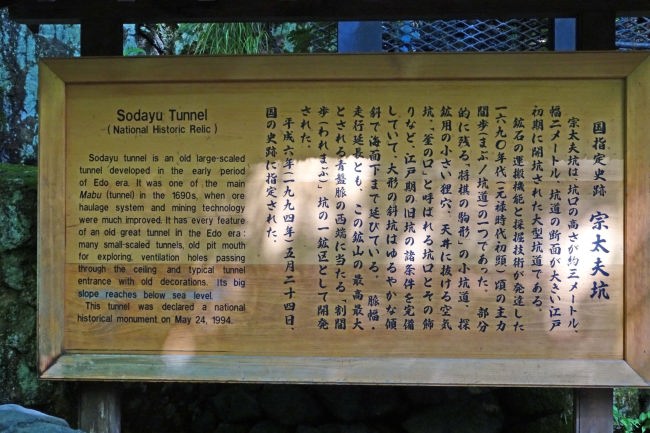 Sodayu Tunnel
(National Historic Relic)
Sodayu tunnel is an old large-scaled
tunnel developed in the early period
of Edo era. It was one of the main
Mabu (tunnel) in the 1690s, when ore
haulage system and mining technology
were much improved. It has every feature
of an old great tunnel in the Edo era:
many small-scaled tunnels, old pit mouth
for exploring, ventilation holes passing
through the ceiling and typical tunnel
entrance with old decorations. Its big
slope reaches below sea level.
This tunnel was declared a national
historical monument on May 24, 1994.
国指定史跡 宗太夫坑
宗太夫坑は、坑口の高さが約三メートル、
幅二メートル、坑道の断面が大きい江戸
初期に開坑された大型坑道である。
鉱石の運搬機能と採掘技術が発達した
一六九〇年代(元禄時代初頭)頃の主力
間歩(まぶ/坑道)の一つであった。部分
的に残る「将棋の駒形」の小坑道、探
鉱用の小さい狸穴、天井に抜ける空気
坑、「釜の口」と呼ばれる坑口とその飾
りなど、江戸期の旧坑の諸条件を完備
していて、大形の斜坑はゆるやかな傾
斜で海面下まで延びている。脈幅・
走行延長とも、この鉱山の最高最大
とされる青盤脈の西端に当たる「割間
歩(われまぶ)」坑の一鉱区として開発
された。
平成六年(一九九四年)五月二十四日、
国の史跡に指定された。